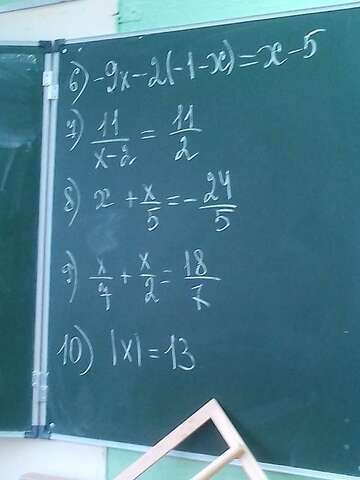 6) -9x-2(-1-x)=x-5
7) 11/(x-2) = 11/2
8) x + x/5 = - 24/5
9) x/7 + x/2 = 18/7
10) |x| = 13